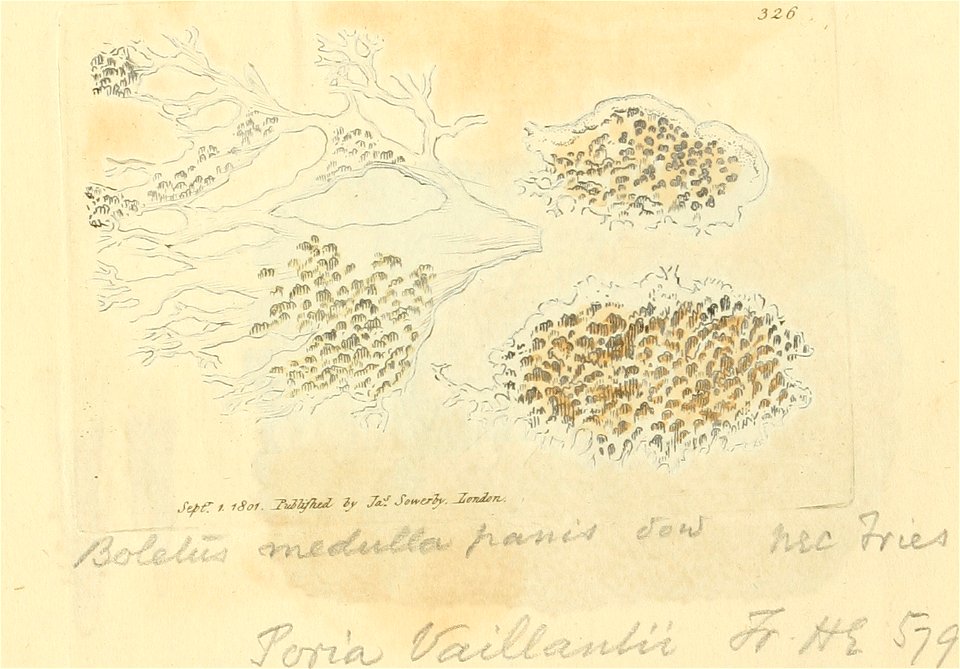 326
Septr. 1. 1801. Publiſhed by Jas. Sowerby, London.
Boletus medulla panis Sow nec Fries
Poria Vaillantii Fr. HE 579